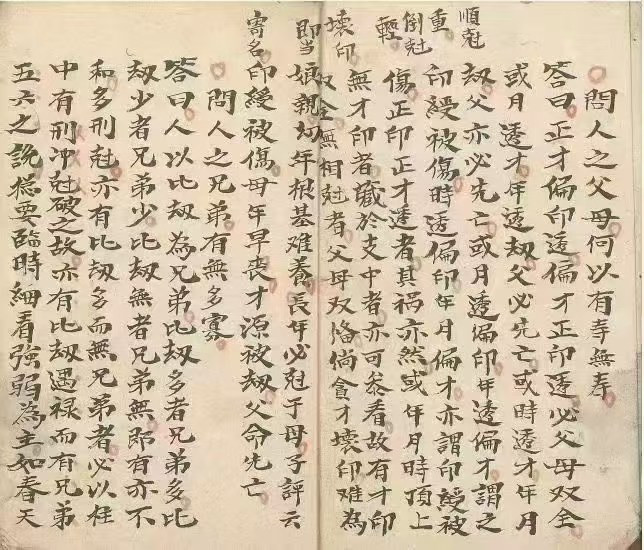 問人之父母何以有寿無寿
答曰正才偏印透偏才正印透必父母双全
或月透才年透刼父必先亡或時透才年月
順尅
刼父亦必先亡或月透偏印年透偏才謂之
重
印綬被傷時透偏印年月偏才亦謂印綬被
倒尅
傷正印正才透者其禍亦然或年月時頂上
輕
無才印者藏於支中者亦可叅看故有才印
壊印
双全無相尅者父母双恪倘貪才壊印难為
即当
娘親幼年根基难養長年必尅于母子評云
寄名
印綬被傷母年早丧才源被刼父命先亡
問人之兄弟有無多寡
答曰人以比刼為兄弟比刼多者兄弟多比
刼少者兄弟少比刼無者兄弟無即有亦不
和多刑尅亦有比刼多而無兄弟者必以柱
中有刑冲尅破之故亦有比刼遇禄而有兄弟
五六之說總要臨時細看強弱為主如春天